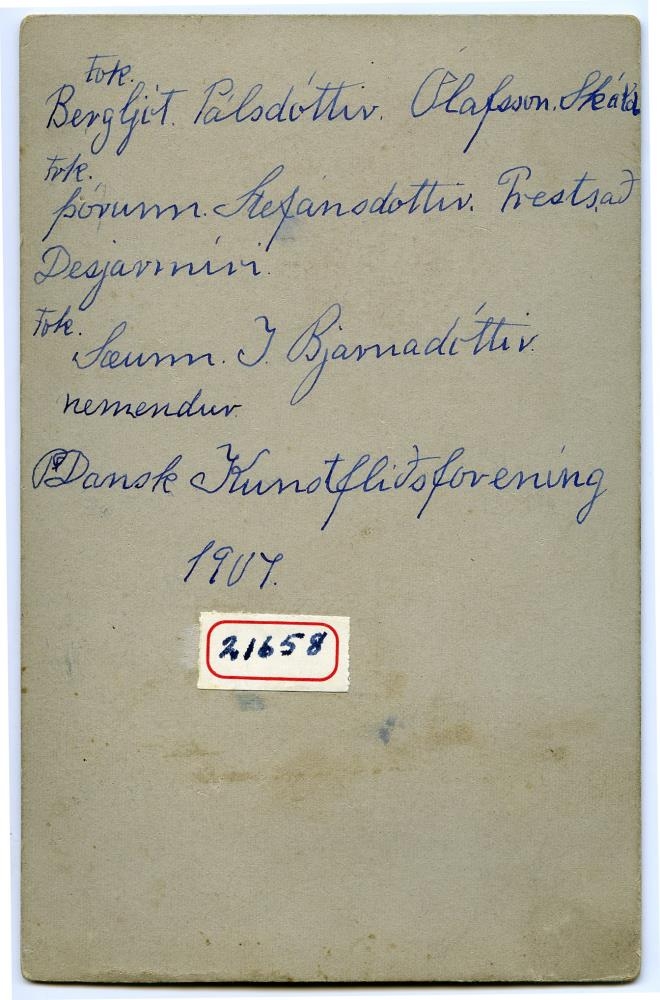 Frk.
Bergljót. Pálsdóttir. Ólafsson. Skáld
Frk.
Þórunn. Stefánsdottir. Prests. að
Desjarmíri.
Frk.
Sæunn. J. Bjarnadóttir.
nemendur
Dansk Kunstfliðsforening
1907.
21658